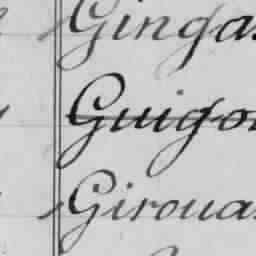 Gingas
Guigou
Giroua